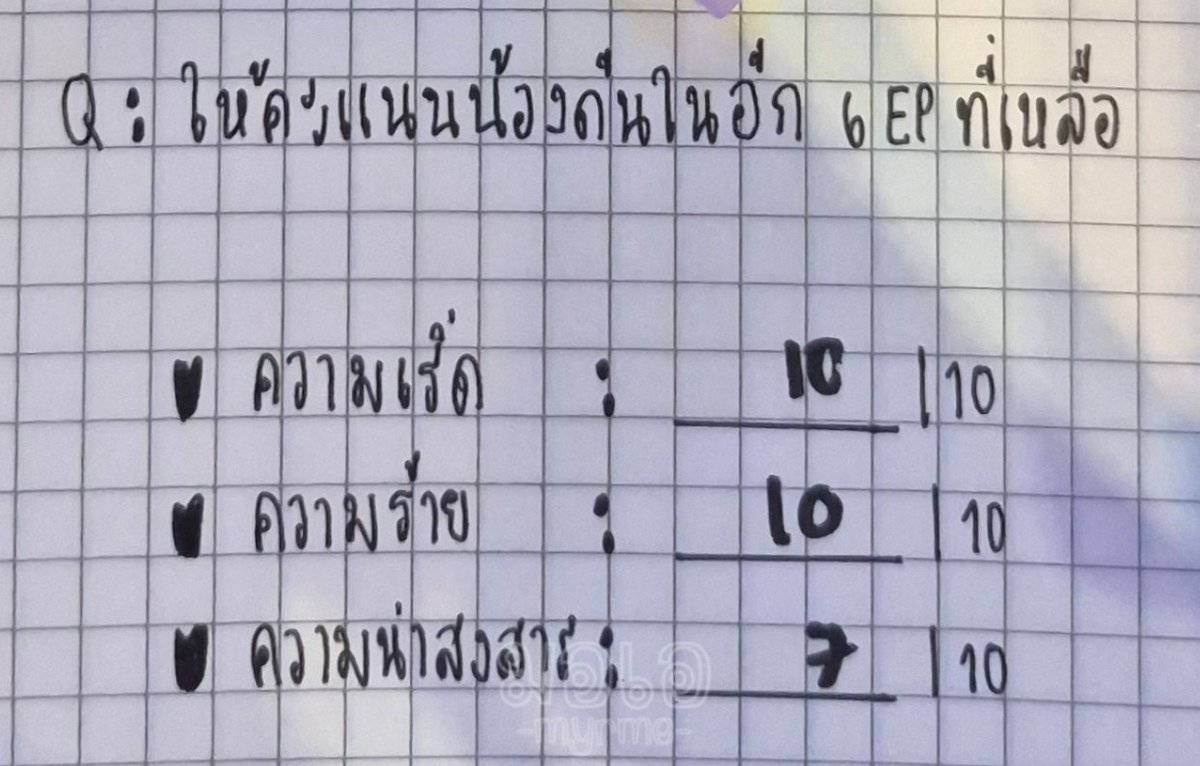 Q : ให้คะแนนน้องดีนในอีก 6 EP ที่เหลือ
♥ ความเริ่ด : 10 | 10
♥ ความร้าย : 10 | 10
♥ ความน่าสงสาร : 7 | 10
มอเอ
-myrme-